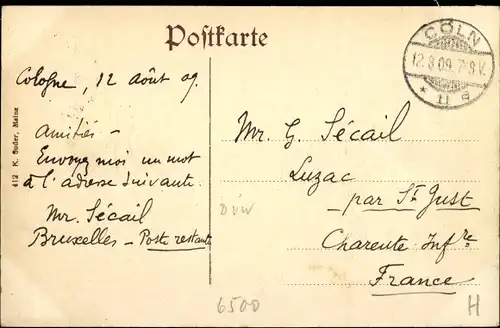 Postkarte
CÖLN
12.8.09.7-8V.
* 11 a
Cologne, 12 août 09.
Amitiés –
Envoyez moi un mot
à l'adresse suivante.
Mr. Sécail
Bruxelles – Poste restante
Mr. G. Sécail
Luzac
par St Just
Charente Infre
France
412 K. Suder, Mainz
DVW
6500
H